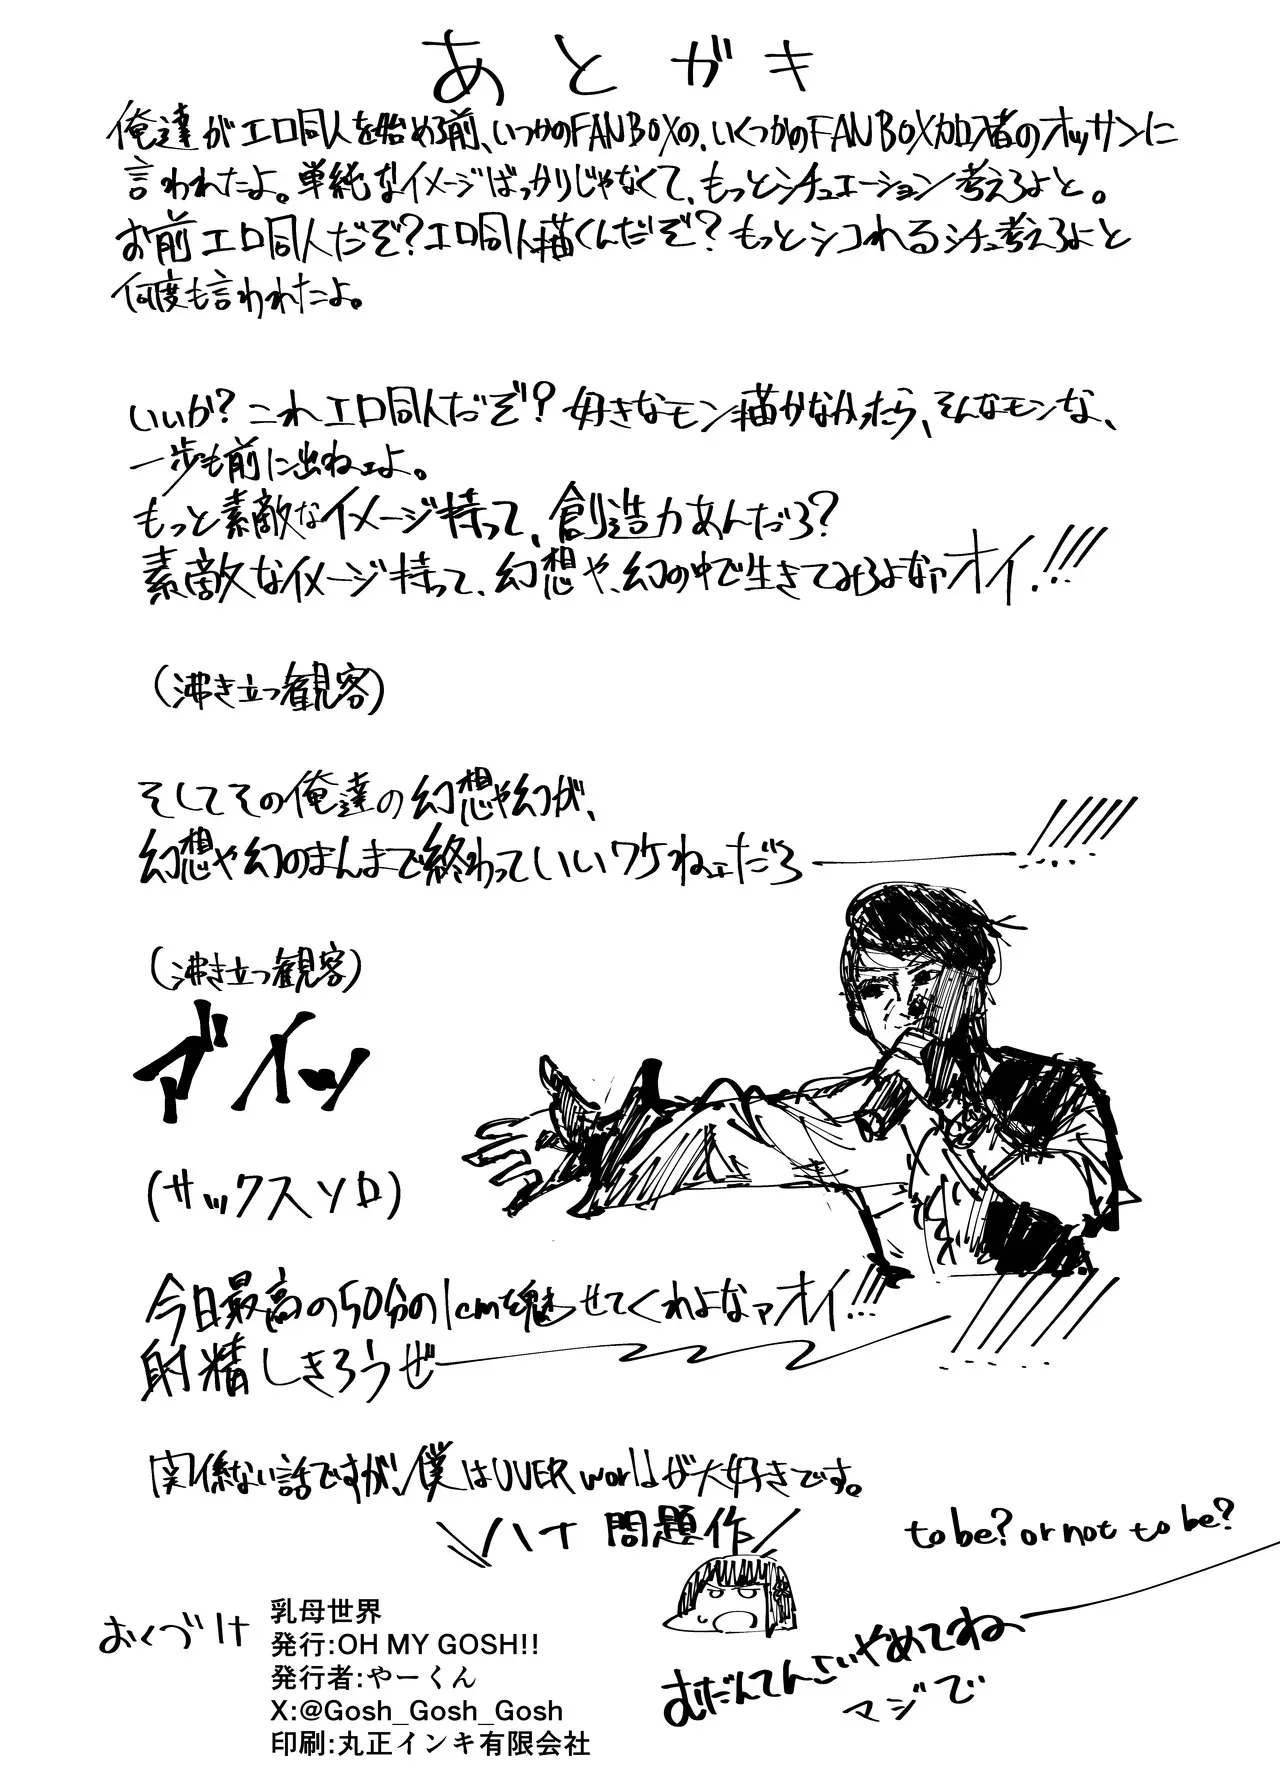 あとがき
俺達がエロ同人を始める前、いつかのFANBOXの、いくつかのFANBOX加入者のオッサンに
言われたよ。単純なイメージばっかりじゃなくて、もっとシチュエーション考えろよと。
お前エロ同人だぞ?エロ同人描くんだぞ?もっとシコれるシチュ考えろよと
何度も言われたよ。
いいか?これエロ同人だぞ?好きなモン描かなかったら、そんなモンな、
一歩も前に出ねェよ。
もっと素敵なイメージ持って、創造力あんだろ?
素敵なイメージ持って、幻想や、幻の中で生きてみろよなァオイ!!!!
(沸き立つ観客)
そしてその俺達の幻想や幻が、
幻想や幻のまんまで終わっていいワケねェだろ――!!!!!
(沸き立つ観客)
マイッ
(サックスソロ)
今日最高の50分の1cmを魅せてくれよなァオイ!!!
射精しきろうぜ――!!!!!
関係ない話ですが、僕はUVERworldが大好きです。
\ハナ問題作/
to be? or not to be?
むだんてんさいやめてね―
マジで
おくづけ
乳母世界
発行:OH MY GOSH!!
発行者:やーくん
X:@Gosh_Gosh_Gosh
印刷:丸正インキ有限会社